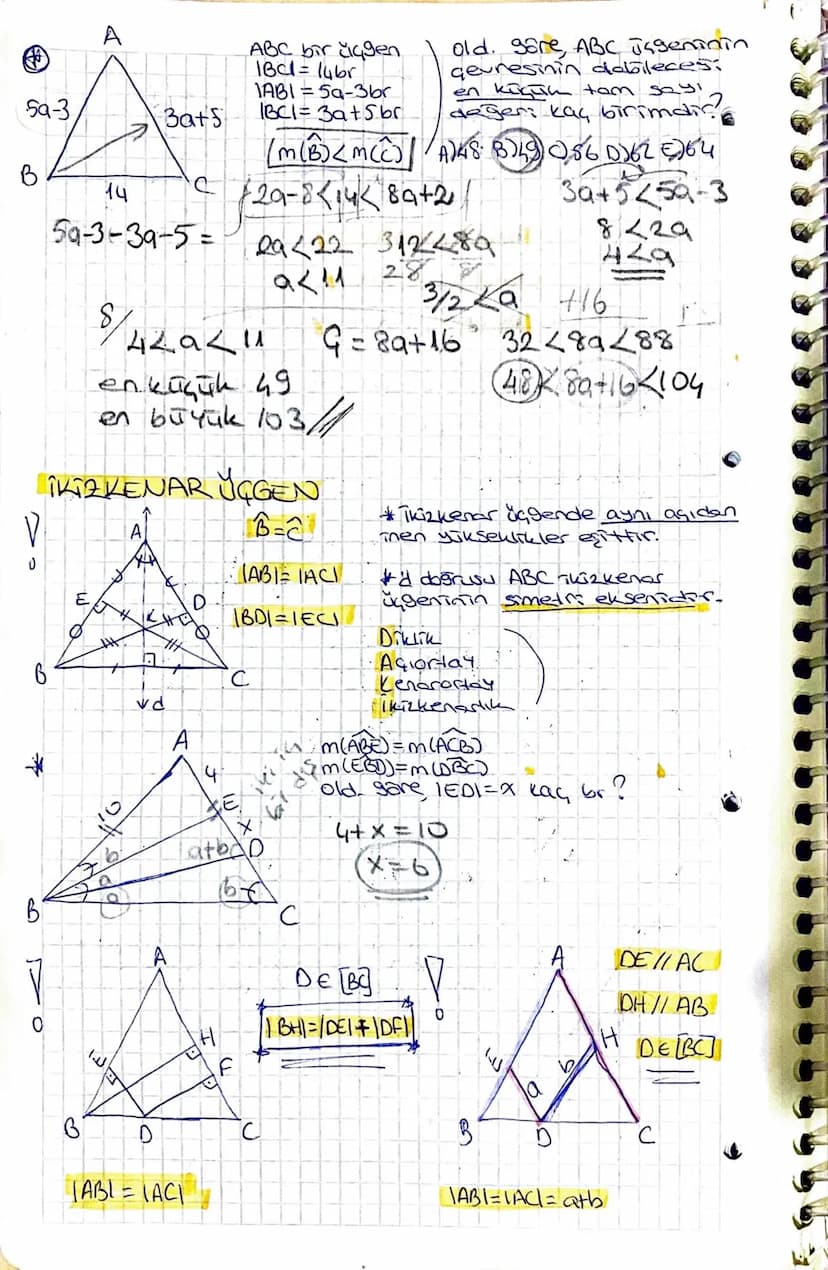 A
5a-3
3a+5
B
14
C
ABC bir üçgen
|BC|=14br
|AB|=5a-3br
|BC|=3a+5br
m(B̂)<m(Ĉ)
Old. göre, ABC üçgeninin
çevresinin alabileceği
en küçük tam sayı
değeri kaç birimdir?
A)48 B)49 C)56 D)62 E)64
2a-8<14<8a+2
3a+5<5a-3
5a-3-3a-5=
2a<22
8<2a
a<11
28
4<a
3/2<a
+16
8/
4<a<11
Ç=8a+16
32<8a<88
en küçük 49
48<8a+16<104
en büyük 103
İKİZKENAR ÜÇGEN
!
A
E
D
K
B
C
d
B̂=Ĉ
|AB|=|AC|
|BD|=|EC|
* İkizkenar üçgende aynı açıdan
inen yükseklikler eşittir.
* d doğrusu ABC ikizkenar
üçgeninin simetri eksenidir.
Diklik
Açıortay
Kenarortay
İkizkenarlık
*
A
4
10
E
x
b
a+b
D
a
a
b
B
C
iki iç
bir dış
m(ABE)=m(ACB)
m(EBD)=m(DBC)
old. göre, |ED|=x kaç br?
4+x=10
x=6
!
A
E
H
F
B
D
C
D∈[BC]
|BH|=|DE|+|DF|
|AB|=|AC|
!
A
E
H
a
b
B
D
C
DE//AC
DH//AB
D∈[BC]
|AB|=|AC|=a+b